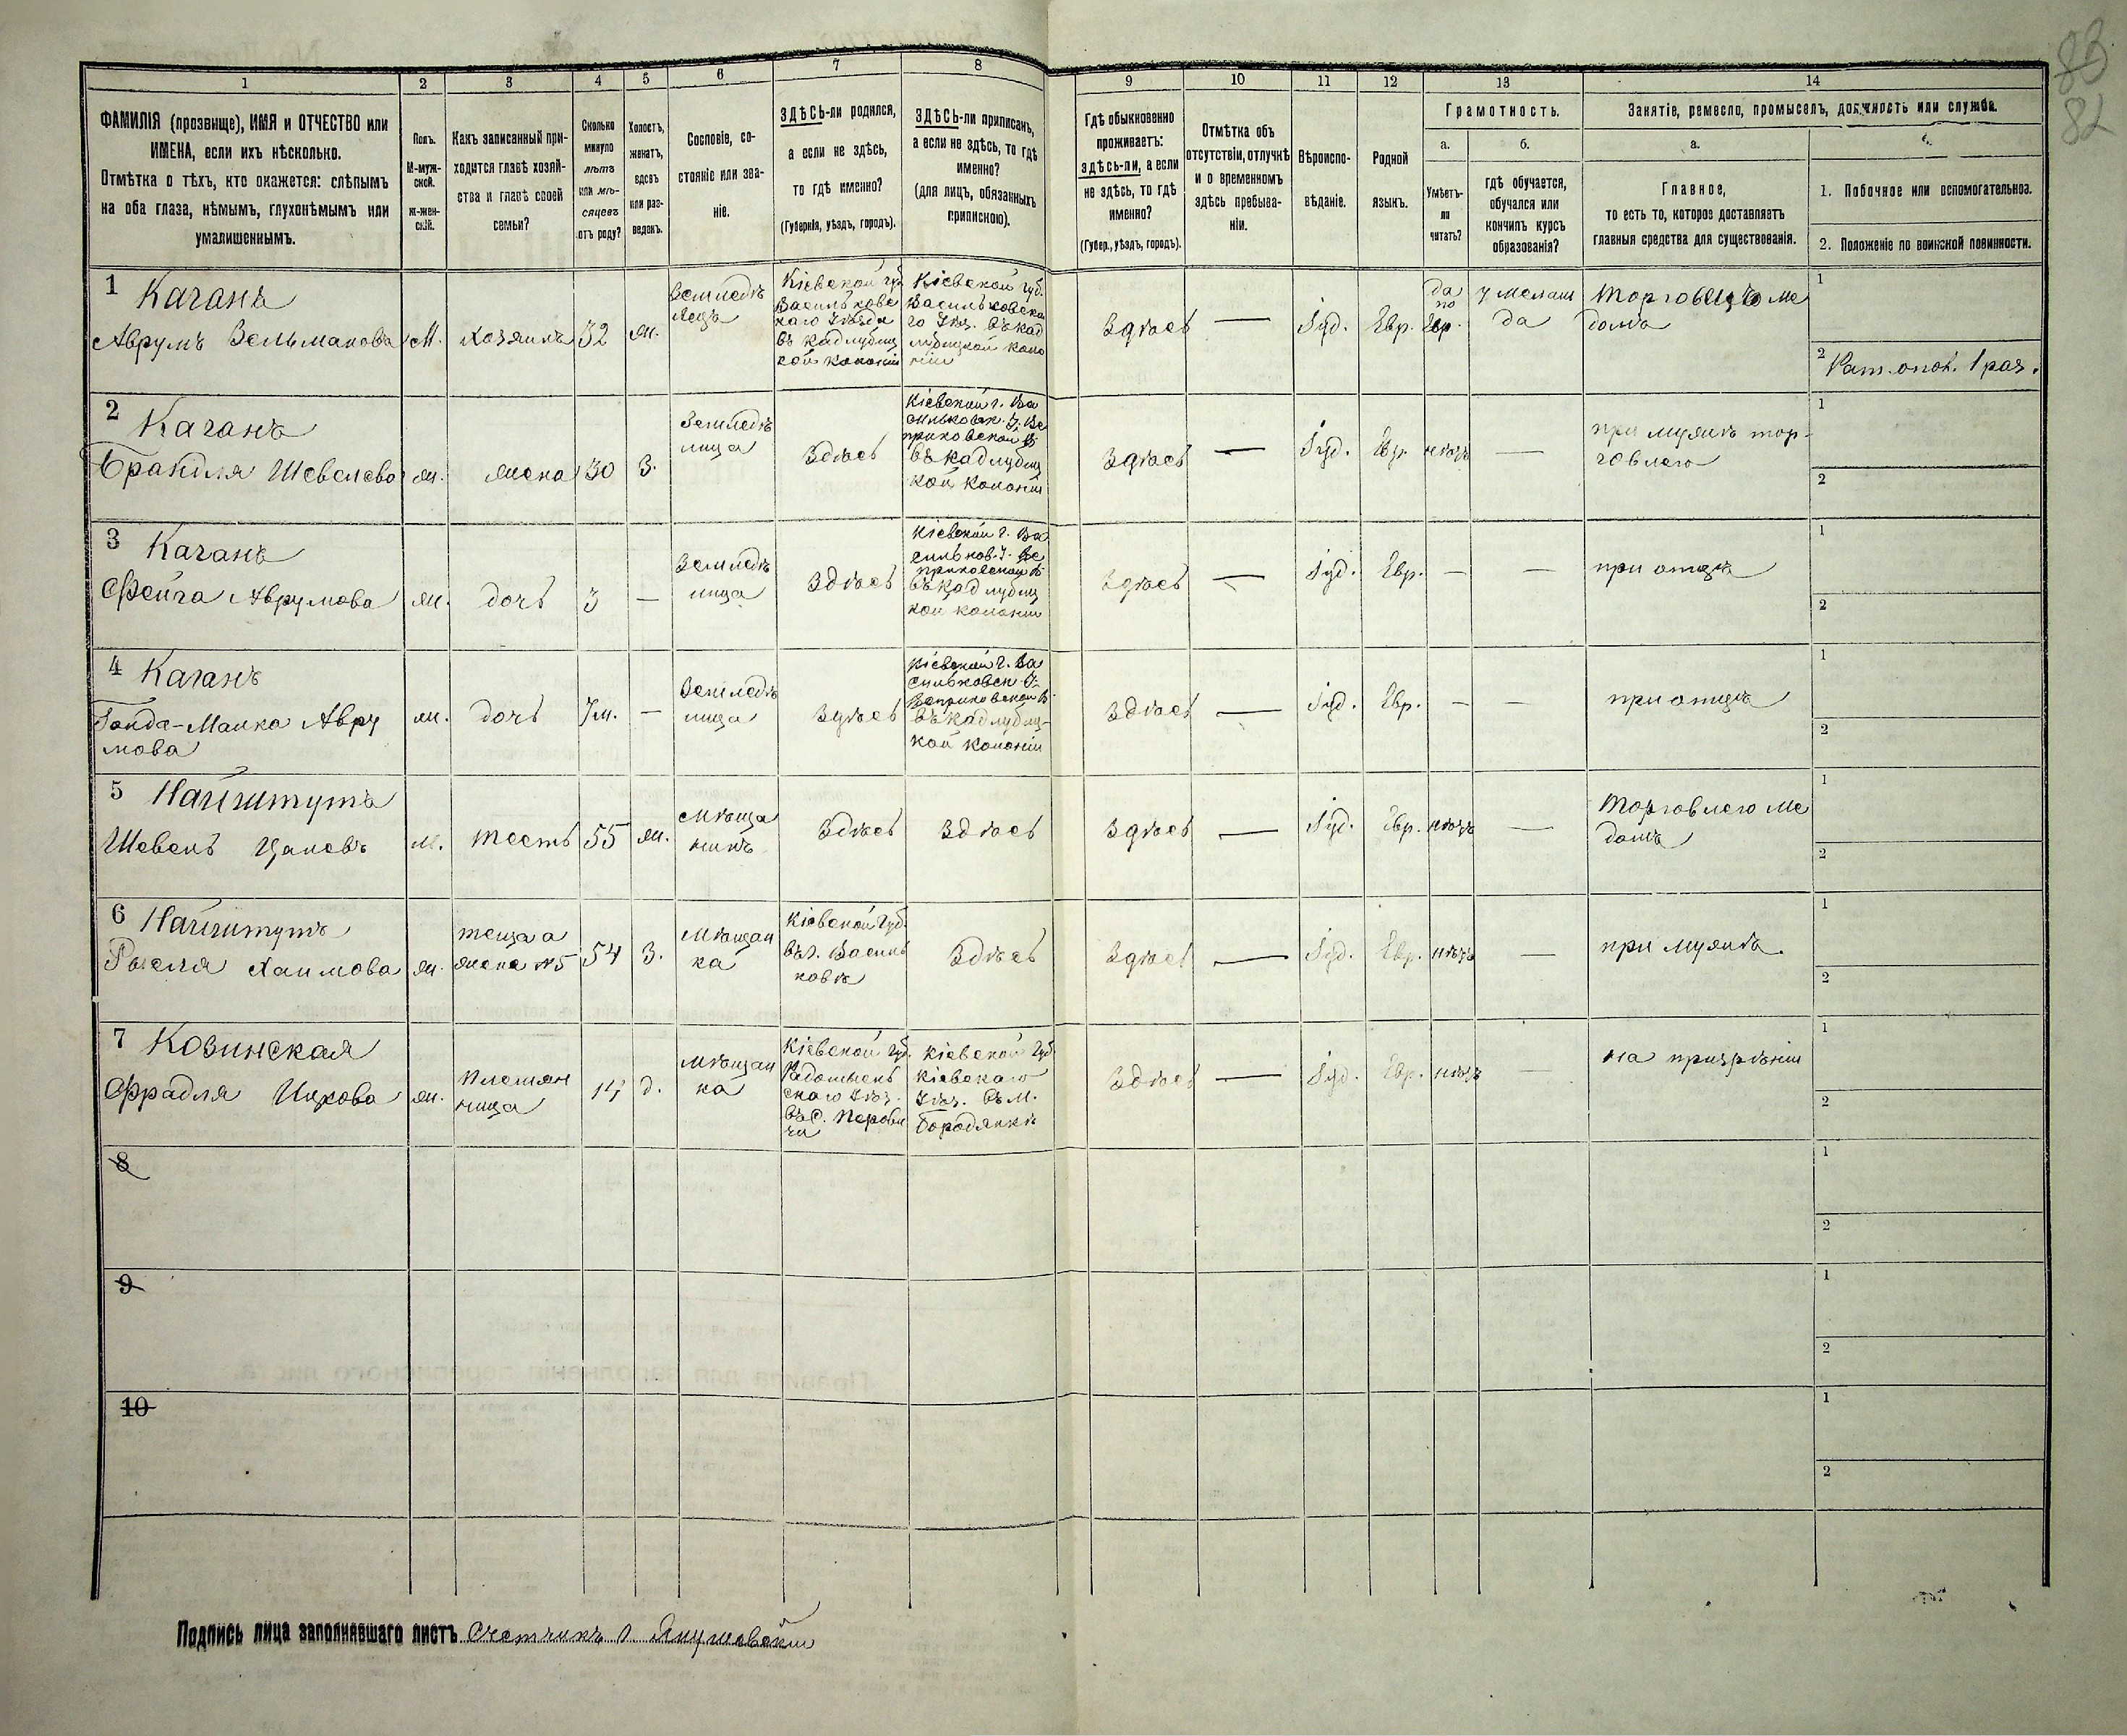 83
82
1
2
3
4
5
6
7
8
9
10
11
12
13
14
ФАМИЛІЯ (прозвище), ИМЯ и ОТЧЕСТВО или
ИМЕНА, если ихъ нѣсколько.
Отмѣтка о тѣхъ, кто окажется: слѣпымъ
на оба глаза, нѣмымъ, глухонѣмымъ или
умалишеннымъ.
Полъ.
М-муж-
ской.
ж-жен-
скій.
Какъ записанный при-
ходится главѣ хозяй-
ства и главѣ своей
семьи?
Сколько
минуло
лѣтъ
или мѣ-
сяцевъ
отъ роду?
Холостъ,
женатъ,
вдовъ
или раз-
веденъ.
Сословіе, со-
стояніе или зва-
ніе.
ЗДѢСЬ-ли родился,
а если не здѣсь,
то гдѣ именно?
(Губернія, уѣздъ, городъ).
ЗДѢСЬ-ли приписанъ,
а если не здѣсь, то гдѣ
именно?
(для лицъ, обязанныхъ
припискою).
Гдѣ обыкновенно
проживаетъ:
здѣсь-ли, а если
не здѣсь, то гдѣ
именно?
(Губер., уѣздъ, городъ).
Отмѣтка объ
отсутствіи, отлучкѣ
и о временномъ
здѣсь пребыва-
ніи.
Вѣроиспо-
вѣданіе.
Родной
языкъ.
Грамотность.
а.
Умѣетъ-
ли
читать?
б.
гдѣ обучается,
обучался или
кончилъ курсъ
образованія?
Занятіе, ремесло, промыселъ, должность или служба.
а.
Главное,
то есть то, которое доставляетъ
главныя средства для существованія.
1. Побочное или вспомогательное.
2. Положеніе по воинской повинности.
1 Каганъ
Аврумъ Зельмановъ
М.
хозяинъ
32
ж.
Земледѣ
лецъ
Кіевской губ
Васильковс
каго Уѣзда
въ Кадлубиц
кой колоніи
Кіевской губ.
Васильковска
го Уѣз. въ Кад
лубицкой коло
ніи
Здѣсь
—
Іуд.
Евр.
да
по
Евр.
У мелам
да
Торговецъ ме
домъ
1
2 Рат. опол. 1 раз.
2 Каганъ
Бранддля Шевелева
ж.
жена
30
З.
Земледѣ
лица
Здѣсь
Кіевской г. Ва
сильковск. У. Ве
приковской В.
въ Кадлубиц
кой колоніи
Здѣсь
—
Іуд.
Евр.
нѣтъ
—
при мужѣ тор-
говлею
1
2
3 Каганъ
Фейга Аврумова
ж.
дочь
3
—
Земледѣ
лица
Здѣсь
Кіевской г. Ва
сильков. У. Ве
приковской В
въ Кадлубиц
кой колоніи
Здѣсь
—
Іуд.
Евр.
—
—
при отцѣ
1
2
4 Каганъ
Гонда-Малка Авру
мова
ж.
дочь
7 м.
—
Земледѣ
лица
Здѣсь
Кіевской г. Ва
сильковск. У.
Веприковской В.
въ Кадлубиц-
кой колоніи
Здѣсь
—
Іуд.
Евр.
—
—
при отцѣ
1
2
5 Найгитутъ
Шевель Цалевъ
М.
тесть
55
ж.
Мѣща
нинъ
Здѣсь
Здѣсь
Здѣсь
—
Іуд.
Евр.
нѣтъ
—
Торговлею ме
домъ
1
2
6 Найгитутъ
Рахеля Хаимова
ж.
теща а
жена №5
54
З.
Мѣщан
ка
Кіевской Губ.
въ г. Василь
ковѣ
Здѣсь
Здѣсь
—
Іуд.
Евр.
нѣтъ
—
при мужѣ.
1
2
7 Козинская
Фрадля Ицкова
ж.
племян
ница
14
д.
Мѣщан
ка
Кіевской Губ.
Радомысль
скаго Уѣз.
въ с.
Кіевской Губ.
Кіевскаго
Уѣз. въ м.
Бородянкѣ
Здѣсь
—
Іуд.
Евр.
нѣтъ
—
на призрѣніи
1
2
8
1
2
9
1
2
10
1
2
Подпись лица заполнявшаго листъ Счетчикъ Янушевскій